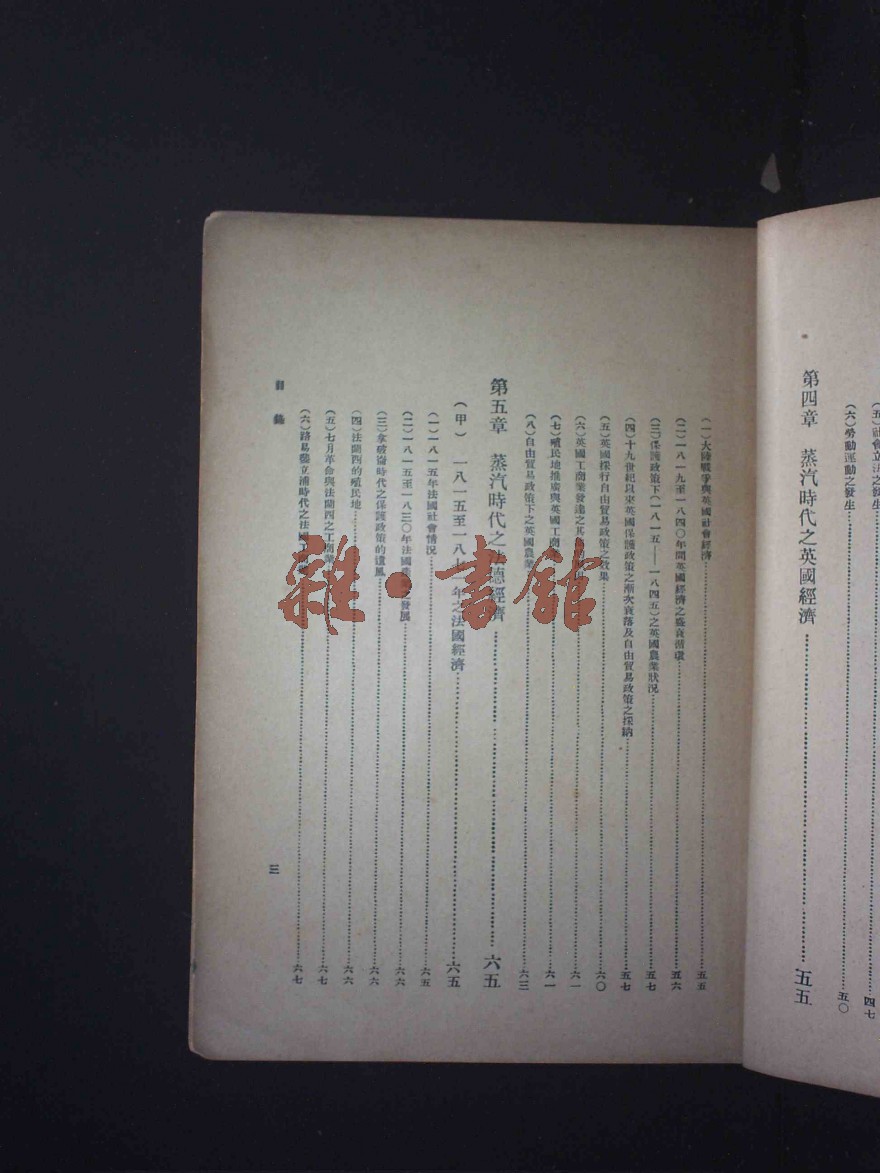 (五)社會立法之發生……四七
(六)勞動運動之發生……五〇
第四章 蒸汽時代之英國經濟……五五
(一)大陸戰爭與英國社會經濟……五五
(二)一八一九至一八四〇年間英國經濟之盛衰循環……五六
(三)保護政策下(一八一五——一八四五)之英國農業狀況……五七
(四)十九世紀以來英國保護政策之漸次衰落及自由貿易政策之採納……五七
(五)英國採行自由貿易政策之效果……六〇
(六)英國工商業發達之其……六一
(七)殖民地推廣與英國工商……六一
(八)自由貿易政策下之英國農業……六三
第五章 蒸汽時代之法德經濟……六五
(甲) 一八一五至一八七一年之法國經濟……六五
(一)一八一五年法國社會情況……六五
(二)一八一五至一八三〇年法國……發展……六六
(三)拿破崙時代之保護政策的遺風……六六
(四)法蘭西的殖民地……六六
(五)七月革命與法蘭西之工商業……六七
(六)路易……立浦時代之法國工……六七
目錄
三
雜·書館